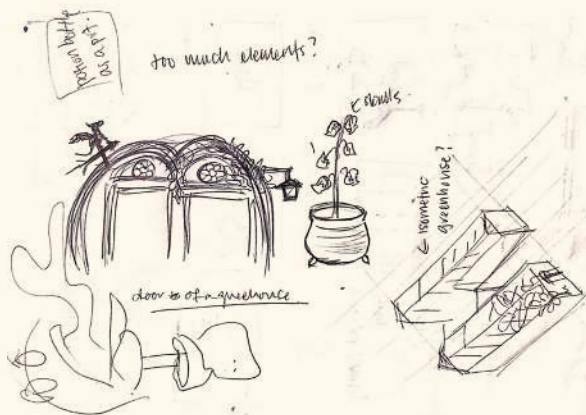 potion bottle
as a pot.
too much elements?
skulls
← isometric
greenhouse?
door to of a greenhouse